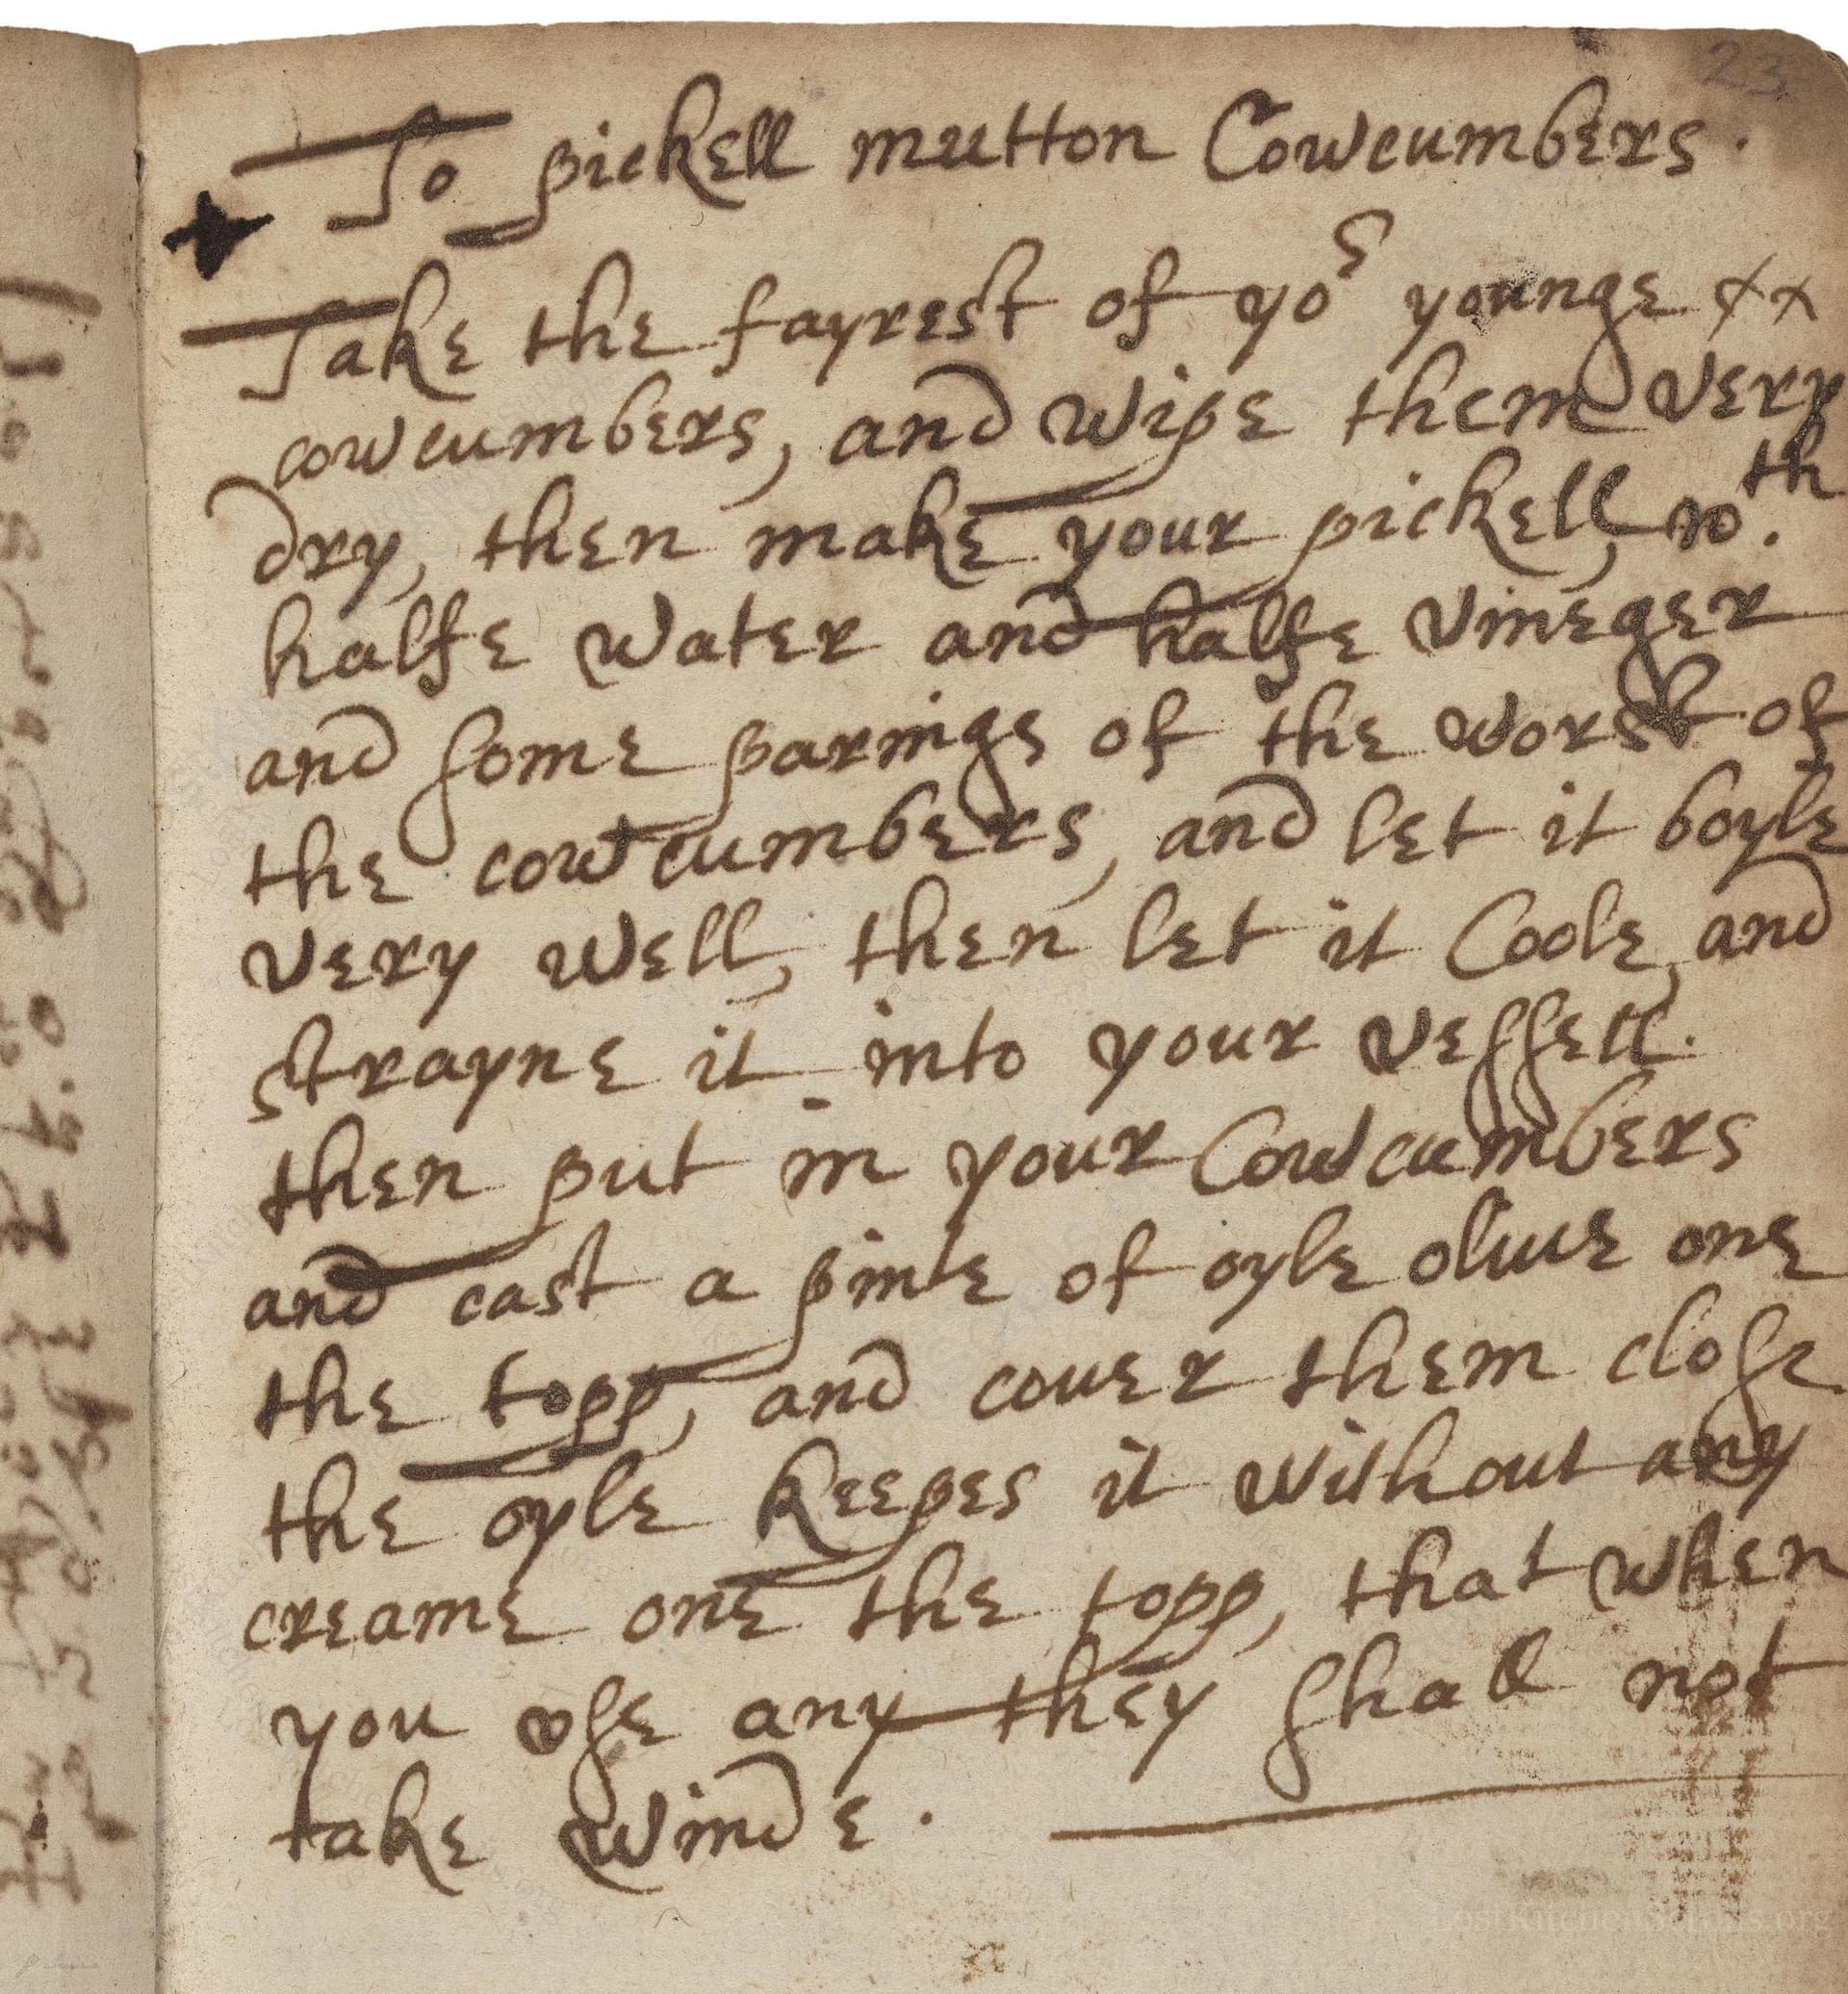 23
To pickell mutton Cowcumbers.
Take the fayrest of yor younge xx
cowcumbers, and wipe them very
dry, then make your pickell, wth.
halfe water and halfe vineger
and some parings of the worst of
the cowcumbers, and let it boyle
very well, then let it Coole, and
strayne it into your vessell.
then put in your Cowcumbers
and cast a pinte of oyle oliue one
the topp, and couer them close
the oyle keepes it without any
creame one the topp, that when
you vse any they shall not
take winde.
LostKitchenScrolls.org